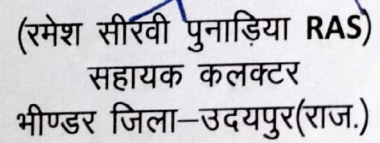 (रमेश सीरवी पुनाड़िया RAS)
सहायक कलक्टर
भीण्डर जिला–उदयपुर(राज.)